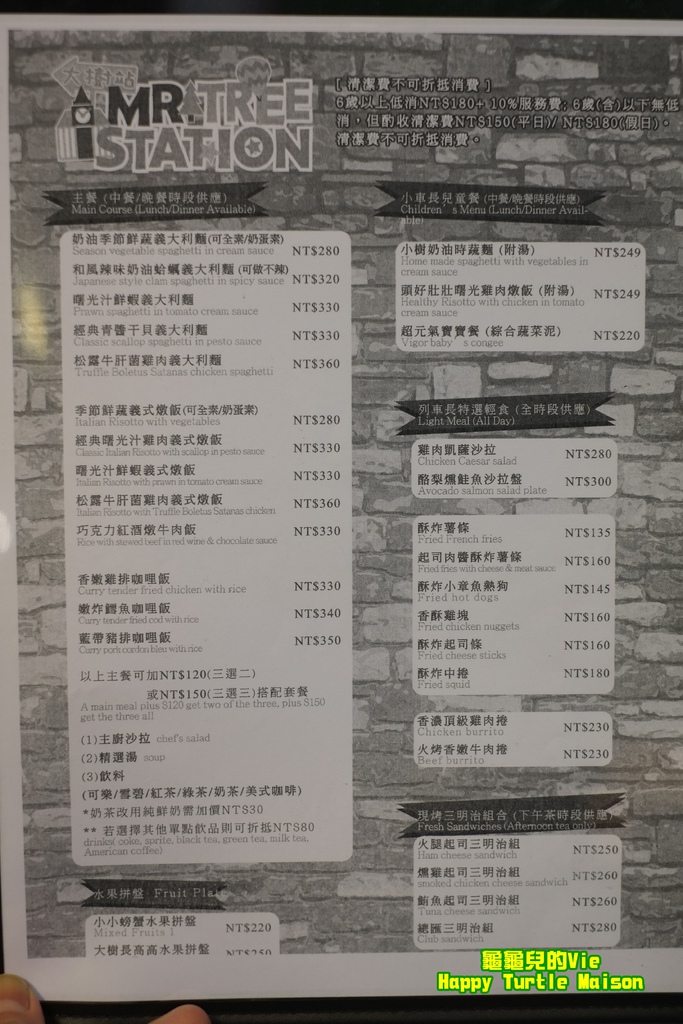 大樹站
MR.TREE
STATION
[ 清潔費不可折抵消費 ]
6歲以上低消NT$180+ 10%服務費; 6歲(含)以下無低
消，但酌收清潔費NT$150(平日)/ NT$180(假日)。
清潔費不可折抵消費。
主餐 (中餐/晚餐時段供應)
Main Course (Lunch/Dinner Available)
奶油季節鮮蔬義大利麵(可全素/奶蛋素)
Season vegetable spaghetti in cream sauce NT$280
和風辣味奶油蛤蠣義大利麵 (可做不辣)
Japanese style clam spaghetti in spicy sauce NT$320
曙光汁鮮蝦義大利麵
Prawn spaghetti in tomato cream sauce NT$330
經典青醬干貝義大利麵
Classic scallop spaghetti in pesto sauce NT$330
松露牛肝菌雞肉義大利麵
Truffle Boletus Satanas chicken spaghetti NT$360
季節鮮蔬義式燉飯(可全素/奶蛋素)
Italian Risotto with vegetables NT$280
經典曙光汁雞肉義式燉飯
Classic Italian Risotto with scallop in pesto sauce NT$330
曙光汁鮮蝦義式燉飯
Italian Risotto with prawn in tomato cream sauce NT$330
松露牛肝菌雞肉義式燉飯
Italian Risotto with Truffle Boletus Satanas chicken NT$360
巧克力紅酒燉牛肉飯
Rice with stewed beef in red wine & chocolate sauce NT$330
香嫩雞排咖哩飯
Curry tender fried chicken with rice NT$330
嫩炸鱈魚咖哩飯
Curry tender fried cod with rice NT$340
藍帶豬排咖哩飯
Curry pork cordon bleu with rice NT$350
以上主餐可加NT$120(三選二)
或NT$150(三選三)搭配套餐
A main meal plus $120 get two of the three, plus $150
get the three all
(1)主廚沙拉 chef's salad
(2)精選湯 soup
(3)飲料
(可樂/雪碧/紅茶/綠茶/奶茶/美式咖啡)
*奶茶改用純鮮奶需加價NT$30
** 若選擇其他單點飲品則可折抵NT$80
drinks( coke, sprite, black tea, green tea, milk tea,
American coffee)
水果拼盤 Fruit Plate
小小螃蟹水果拼盤
Mixed Fruits 1 NT$220
大樹長高高水果拼盤 NT$250
小車長兒童餐 (中餐/晚餐時段供應)
Children's Menu (Lunch/Dinner Avail-
able)
小樹奶油時蔬麵 (附湯) NT$249
Home made spaghetti with vegetables in
cream sauce
頭好壯壯曙光雞肉燉飯 (附湯) NT$249
Healthy Risotto with chicken in tomato
cream sauce
超元氣寶寶餐 (綜合蔬菜泥) NT$220
Vigor baby's congee
列車長特選輕食 (全時段供應)
Light Meal (All Day)
雞肉凱薩沙拉 NT$280
Chicken Caesar salad
酪梨燻鮭魚沙拉盤 NT$300
Avocado salmon salad plate
酥炸薯條 NT$135
Fried French fries
起司肉醬酥炸薯條 NT$160
Fried fries with cheese & meat sauce
酥炸小章魚熱狗 NT$145
Fried hot dogs
香酥雞塊 NT$160
Fried chicken nuggets
酥炸起司條 NT$160
Fried cheese sticks
酥炸中捲 NT$180
Fried squid
香濃頂級雞肉捲 NT$230
Chicken burrito
火烤香嫩牛肉捲 NT$230
Beef burrito
現烤三明治組合 (下午茶時段供應)
Fresh Sandwiches (Afternoon tea only)
火腿起司三明治組 NT$250
Ham cheese sandwich
燻雞起司三明治組 NT$260
smoked chicken cheese sandwich
鮪魚起司三明治組 NT$260
Tuna cheese sandwich
總匯三明治組 NT$280
Club sandwich
龜龜兒的Vie
Happy Turtle Maison